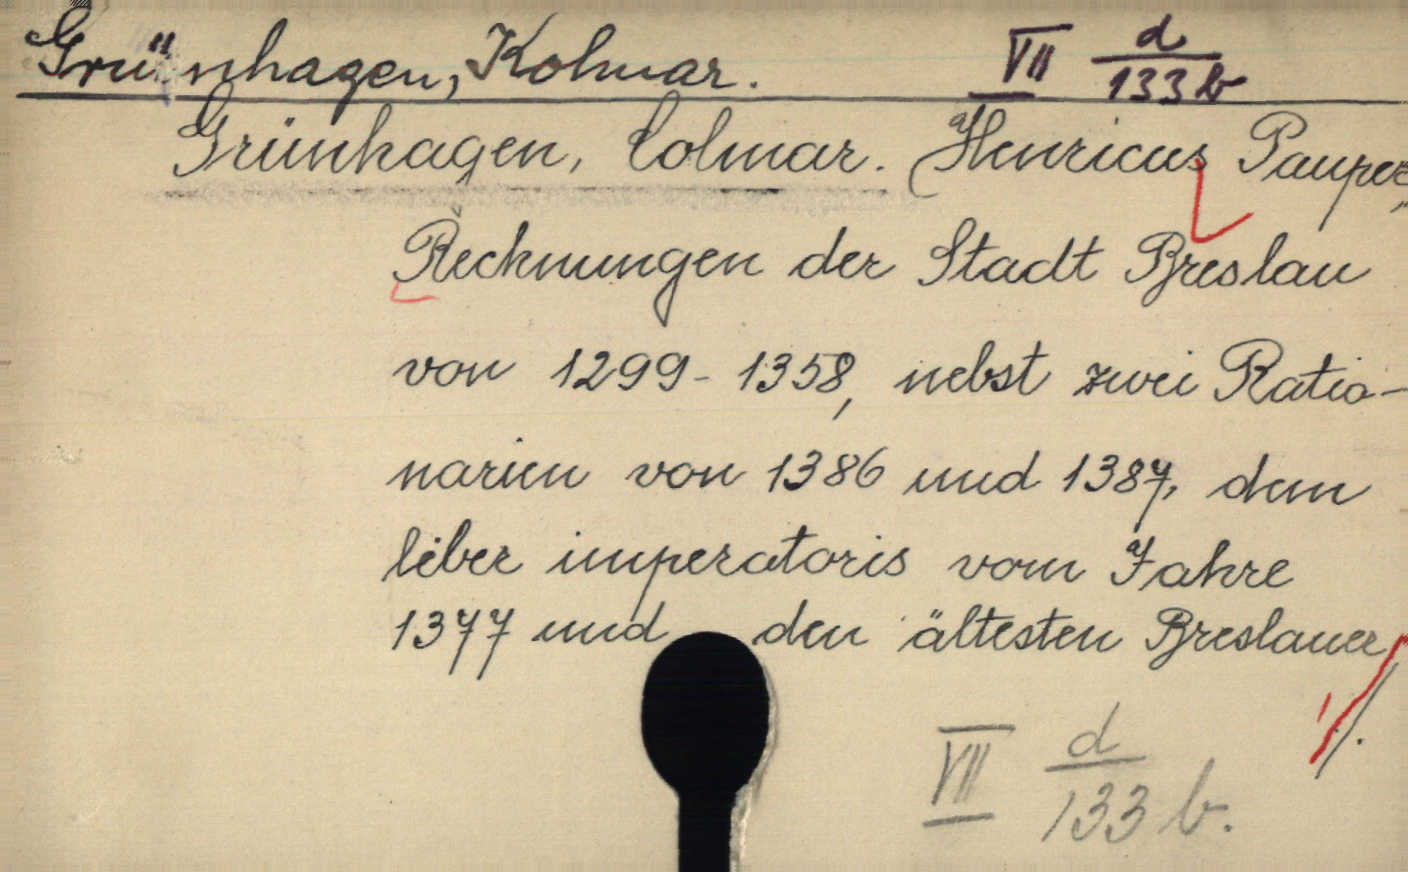 Grünhagen, Kolmar. VII d/133 b
Grünhagen, Colmar. (Henricus Pauper,
Rechnungen der Stadt Breslau
von 1299-1358, nebst zwei Ratio-
narien von 1386 und 1387, dem
liber imperatoris vom Jahre
1377 und den ältesten Breslauer
./.
VII d/133 b.